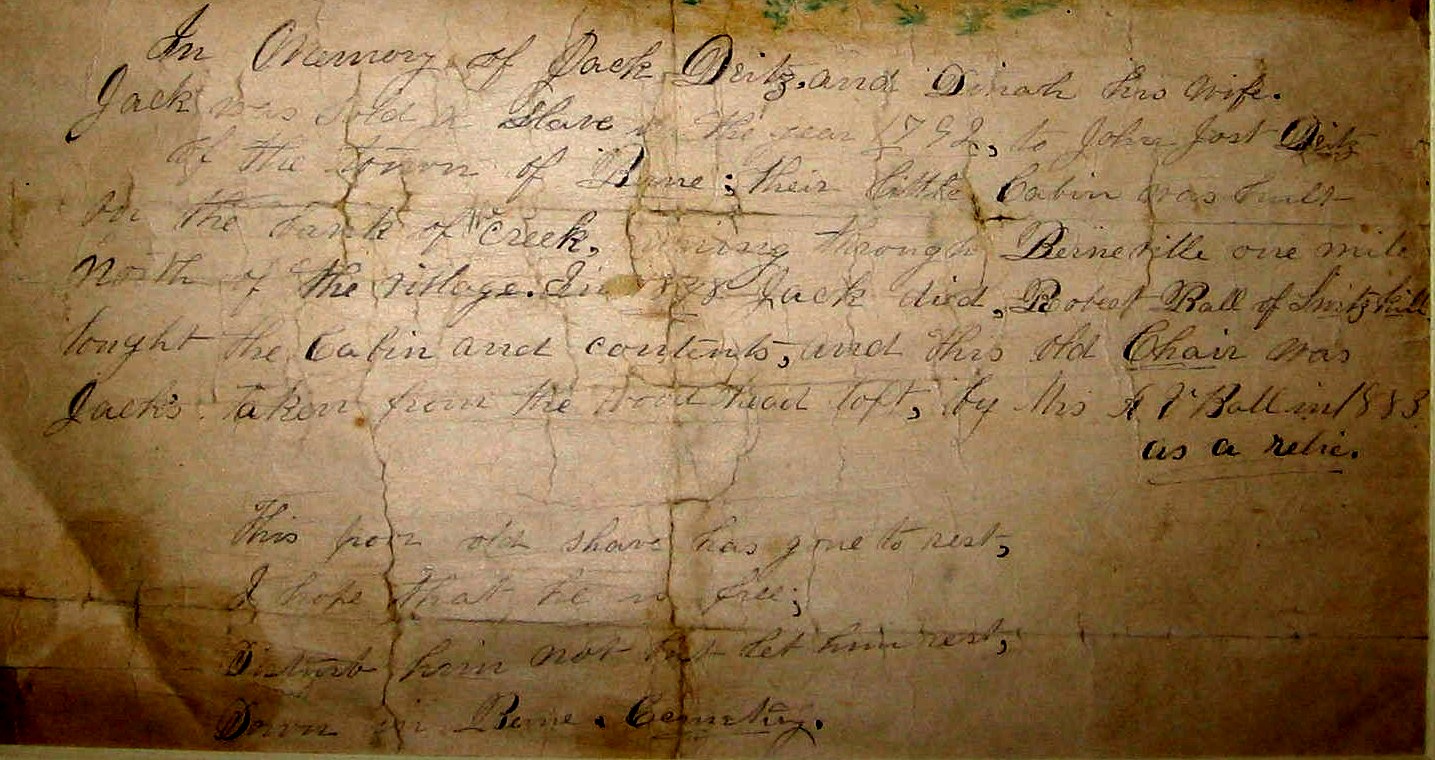 In Memory of Jack Deitz, and Dinah his wife.
Jack was sold a Slave in the year 1792, to John Jost Deitz
of the town of Berne; their little Cabin was built
on the bank of the creek, running through Berneville one mile
North of the village. In 18 8 Jack died, Robert Ball of Switzkill
bought the Cabin and contents, and this old Chair was
Jack's taken from the head loft, by Mrs Ball in 1883
as a relic.
This poor old slave has gone to rest,
I hope that he is free;
Disturb him not but let him rest,
Down in Berne. Cemetery.